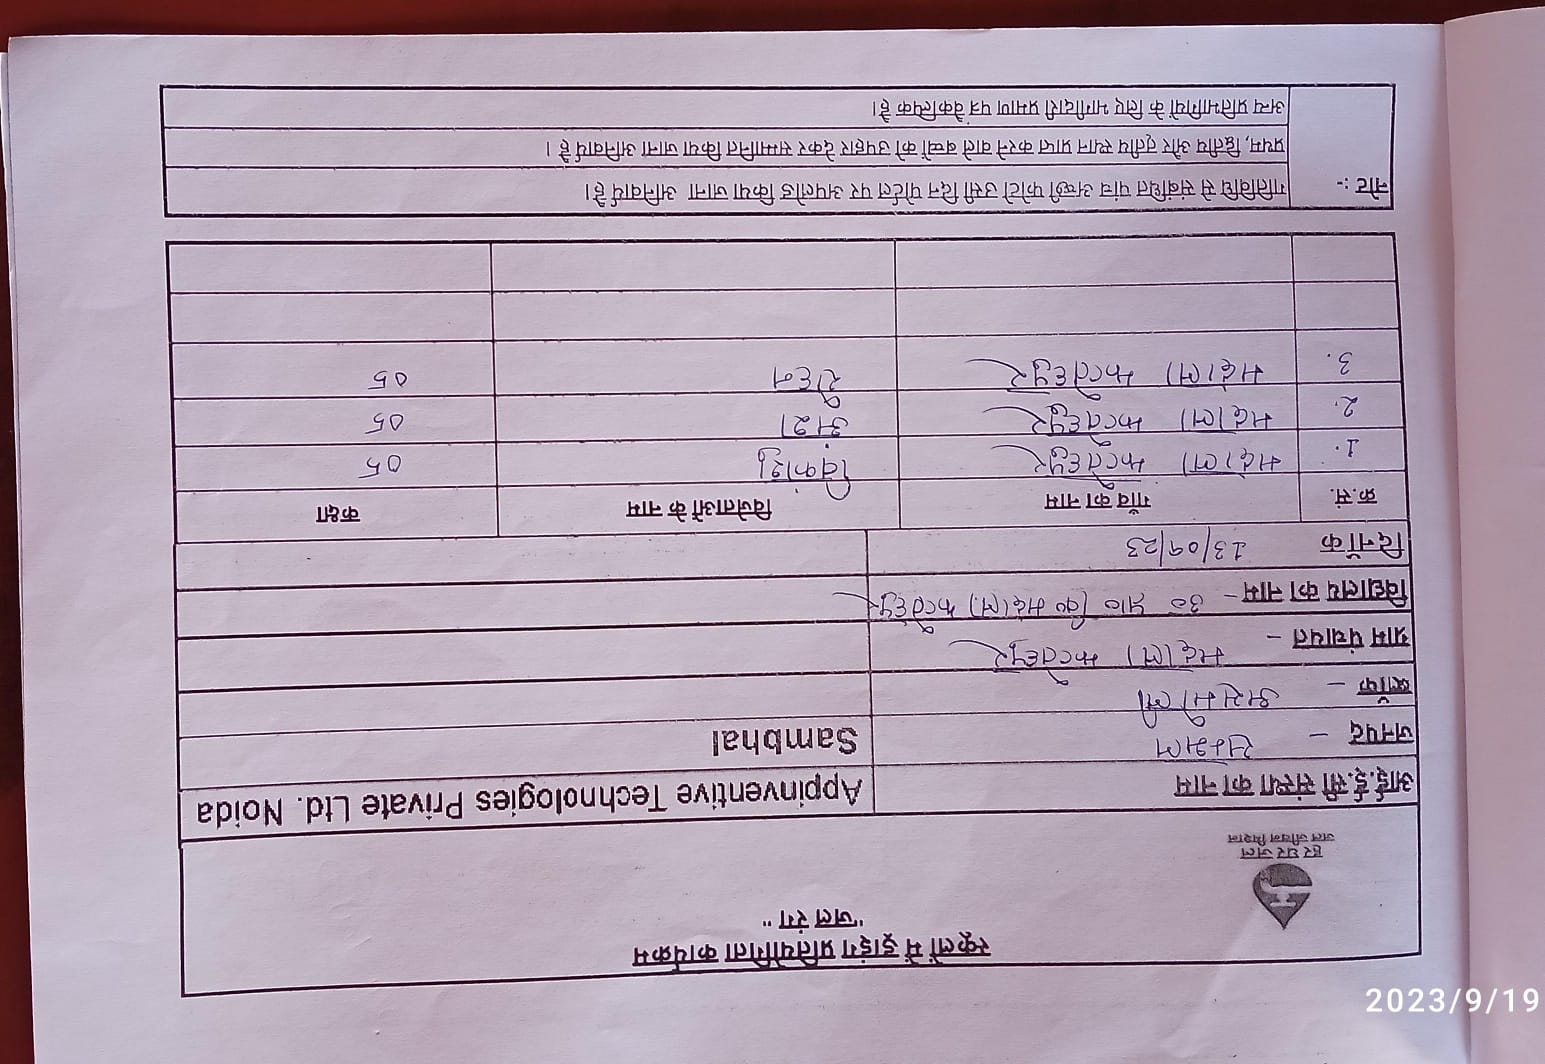 स्कूलों में ड्राइंग प्रतियोगिता कार्यक्रम
"जल रंग"
हर घर जल
जल जीवन मिशन
आई.ई.सी संस्था का नाम Appinventive Technologies Private Ltd. Noida
जनपद – सम्भल Sambhal
ब्लॉक – असमोली
ग्राम पंचायत – मढ़ाला फत्तेहपुर
विद्यालय का नाम – उ० प्रा० वि० मढ़ाला फत्तेहपुर
दिनाँक 13/09/23
क्र.सं. गाँव का नाम विजेताओं के नाम कक्षा
1. मढ़ाला फत्तेहपुर 05
2. मढ़ाला फत्तेहपुर 05
3. मढ़ाला फत्तेहपुर 05
नोट :- गतिविधि से संबंधित पांच अच्छी फोटो उसी दिन पोर्टल पर अपलोड किया जाना अनिवार्य है।
प्रथम, द्वितीय और तृतीय स्थान प्राप्त करने वाले बच्चों को उपहार देकर सम्मानित किया जाना अनिवार्य है।
अन्य प्रतिभागियों के लिए भागीदारी प्रमाण पत्र वैकल्पिक है।
2023/9/19